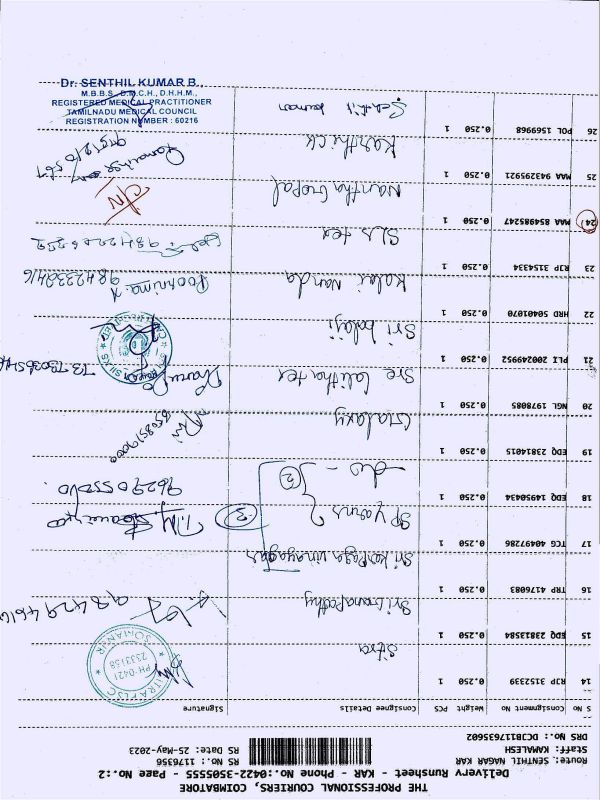 THE PROFESSIONAL COURIERS, COIMBATORE
Delivery Runsheet - KAR - Phone No.:0422-3505555 - Page No.:2
Route: SENTHIL NAGAR KAR
Staff: KAMALESH
DRS No.: DCJB117635602
RS No.: 1176356
RS Date: 25-May-2023
S No Consignment No Weight PCS Consignee Details Signature
14 RJP 3152339 0.250 1 Sitra
SITRAPUSC PH-0421 2333158 SOMANUR
15 EDQ 23813584 0.250 1 Sri Ganapathy
16 TRP 4176083 0.250 1 Sri.Karpaga vinayagar
17 TCG 40497286 0.250 1 SP yarns
18 EDQ 14950434 0.250 1 - do - 2 3 9629055510
19 EDQ 23814015 0.250 1 Galaxy
20 NGL 1978085 0.250 1 Sre Lalitha tex
21 PLI 200249952 0.250 1 Sri balaji
22 HRD 50401070 0.250 1 Kalai Nanda Poornima.K 9842339416
23 RJP 3154334 0.250 1 SLS tex 9842206252
24 MAA 854985247 0.250 1 Nantha Gopal
25 MAA 943295921 0.250 1 Karthick
26 POL 1569968 0.250 1 Senthil kumar
Dr. SENTHIL KUMAR B.
M.B.B.S., D.M.C.H., D.H.H.M.,
REGISTERED MEDICAL PRACTITIONER
TAMILNADU MEDICAL COUNCIL
REGISTRATION NUMBER : 60216